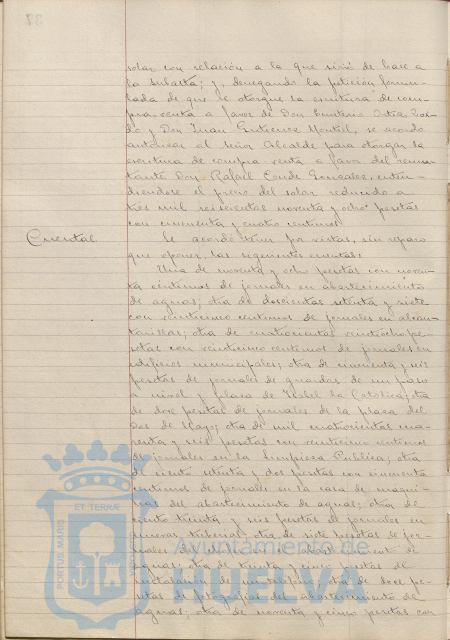 solar con relación a la que sirvió de base a
la subasta; y, denegando la petición formu-
lada de que se otorgue la escritura de com-
pra-venta a favor de Don Emeterio
y Don Juan Gutierrez Montiel, se acordó
autorizar al Señor Alcalde para otorgar la
escritura de compra venta a favor del rema-
tante Don Rafael Conde Gonzalez, enten-
diendose el precio del solar reducido a
tres mil seiscientas noventa y ocho pesetas
con cincuenta y cuatro centimos.
Cuentas.
Se acordó tener por vistas, sin reparo
que oponer, las siguientes cuentas:
Una de noventa y ocho pesetas con noven-
ta centimos de jornales en abastecimiento
de aguas; otra de doscientas setenta y siete
con veinticinco centimos de jornales en alcan-
tarillas; otra de cuatrocientas veintiocho pe-
setas con veinticinco centimos de jornales en
edificios municipales; otra de cincuenta y seis
pesetas de jornales de guardas de un paso
a nivel y plaza de Isabel la Católica; otra
de doce pesetas de jornales de la plaza del
Dos de Mayo; otra de mil cuatrocientas cua-
renta y seis pesetas con veinticinco centimos
de jornales en la Limpieza Publica; otra
de ciento setenta y dos pesetas con cincuenta
centimos de jornales en la casa de maqui-
nas del abastecimiento de aguas; otra de
ciento treinta y seis pesetas de jornales en
nuevas tuberias; otra de siete pesetas de jor-
nales de
aguas; otra de treinta y cinco pesetas de
instalación de un telefono; otra de doce pe-
setas de fotografias del abastecimiento de
aguas; otra de noventa y cinco pesetas con
PORTUS MARIS ET TERRÆ
Ayuntamiento de
HUELVA